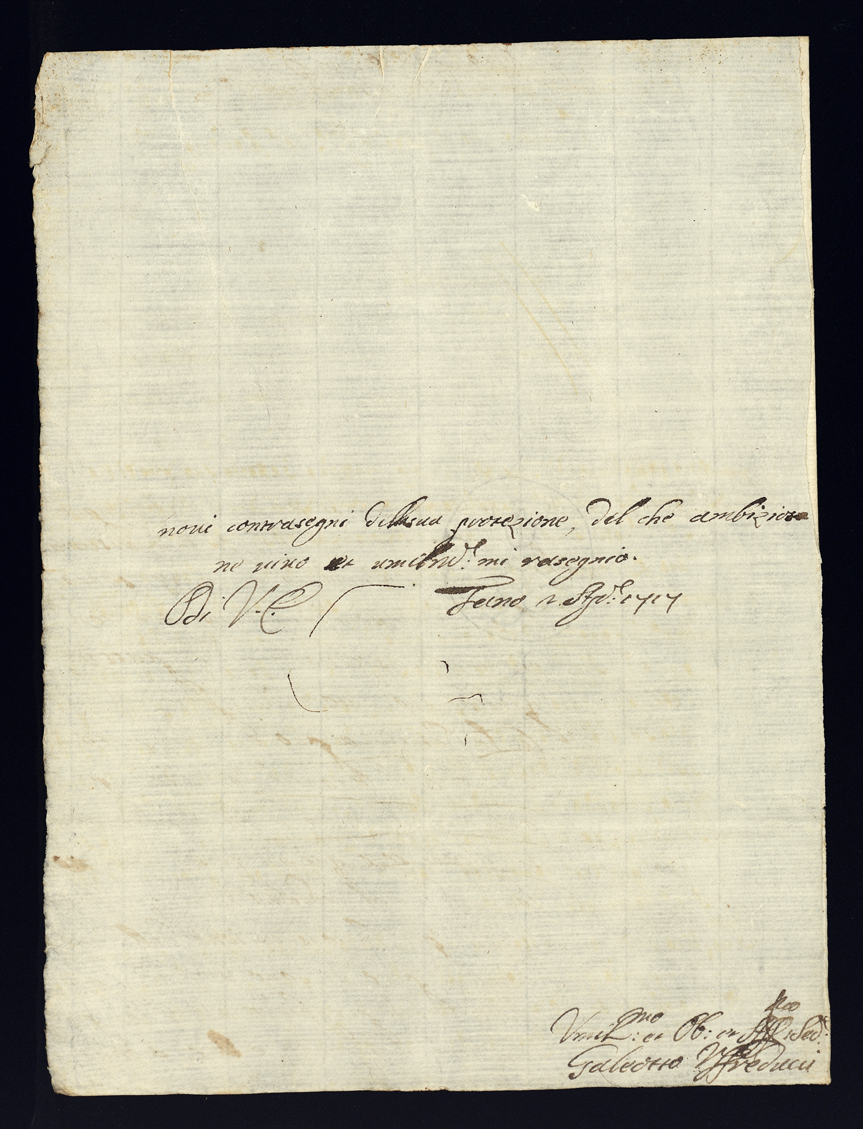 novi contrasegni della sua protezione, del che ambizioso
ne vivo et umilmte: mi rasegnio.
Di V. E.
Fano 2 1717
Umilmo: et Ob: et
Galeotto Uffreducci